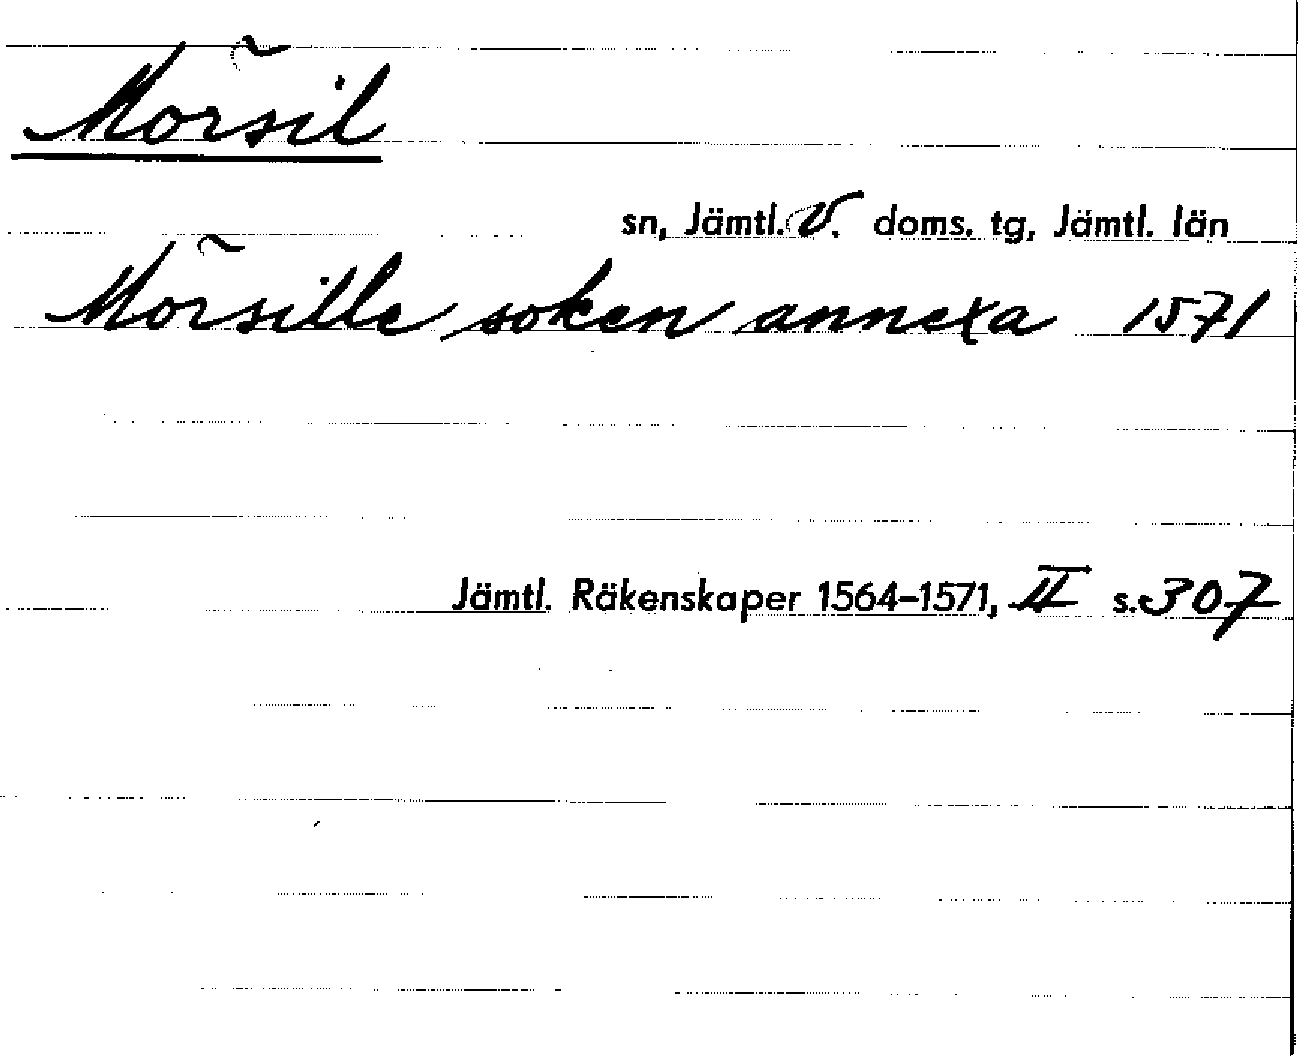 Mörsil
sn, Jämtl. v. doms. tg, Jämtl. län
Mörsille soken annexa 1571
Jämtl. Räkenskaper 1564–1571, II s. 307